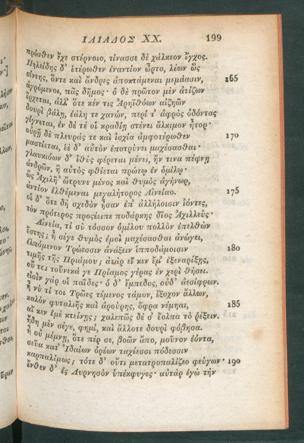 ΙΛΙΑΔΟΣ ΧΧ. 199
πρῶσθεν ἔχε στέρνοιο, τίνασσε δὲ χάλκεον ἔγχος.
Πηλείδης δ' ἑτέρωθεν ἐναντίον ὦρτο, λέων ὣς
σίντης, ὅντε καὶ ἄνδρες ἀποκτάμεναι μεμάασιν, 165
ἀγρόμενοι, πᾶς δῆμος· ὁ δὲ πρῶτον μὲν ἀτίζων
ἔρχεται, ἀλλ' ὅτε κέν τις Ἀρηϊθόων αἰζηῶν
δουρὶ βάλῃ, ἐάλη τε χανὼν, περί τ' ἀφρὸς ὀδόντας
γίγνεται, ἐν δέ τέ οἱ κραδίῃ στένει ἄλκιμον ἦτορ·
οὐρῇ δὲ πλευράς τε καὶ ἰσχία ἀμφοτέρωθεν 170
μαστίεται, ἑὲ δ' αὐτὸν ἐποτρύνει μαχέσασθαι·
γλαυκιόων δ' ἰθὺς φέρεται μένει, ἤν τινα πέφνῃ
ἀνδρῶν, ἢ αὐτὸς φθίεται πρώτῳ ἐν ὁμίλῳ·
ὣς Ἀχιλῆ' ὤτρυνε μένος καὶ θυμὸς ἀγήνωρ,
ἀντίον ἐλθέμεναι μεγαλήτορος Αἰνείαο. 175
οἱ δ' ὅτε δὴ σχεδὸν ἦσαν ἐπ' ἀλλήλοισιν ἰόντες,
τὸν πρότερος προσέειπε ποδάρκης δῖος Ἀχιλλεύς·
Αἰνεία, τί σὺ τόσσον ὁμίλου πολλὸν ἐπελθὼν
ἔστης; ἦ σέγε θυμὸς ἐμοὶ μαχέσασθαι ἀνώγει,
ἐλπόμενον Τρώεσσιν ἀνάξειν ἱπποδάμοισιν 180
τιμῆς τῆς Πριάμου; ἀτὰρ εἴ κεν ἔμ' ἐξεναρίξῃς,
οὔ τοι τοὔνεκά γε Πρίαμος γέρας ἐν χερὶ θήσει·
εἰσὶν γάρ οἱ παῖδες· ὁ δ' ἔμπεδος, οὐδ' ἀεσίφρων.
ἦ νύ τί τοι Τρῶες τέμενος τάμον, ἔξοχον ἄλλων,
καλὸν φυταλιῆς καὶ ἀρούρης, ὄφρα νέμηαι, 185
αἴ κεν ἐμὲ κτείνῃς; χαλεπῶς δέ σ' ἔολπα τὸ ῥέξειν.
ἤδη μὲν σέγε, φημὶ, καὶ ἄλλοτε δουρὶ φόβησα.
ἢ οὐ μέμνῃ, ὅτε πέρ σε, βοῶν ἄπο, μοῦνον ἐόντα,
σεῦα κατ' Ἰδαίων ὀρέων ταχέεσσι πόδεσσιν
καρπαλίμως; τότε δ' οὔτι μετατροπαλίζεο φεύγων· 190
ἔνθεν δ' ἐς Λυρνησὸν ὑπέκφυγες· αὐτὰρ ἐγὼ τὴν